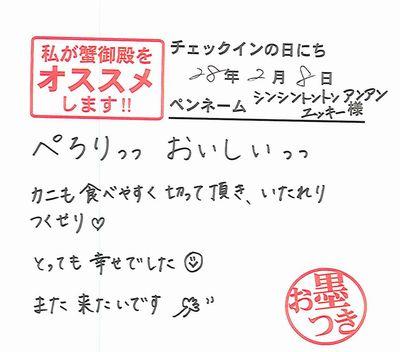 私が蟹御殿を
オススメ
します!!
チェックインの日にち
28年2月8日
ペンネーム シンシントントン アンアン
ユッキー様
ぺろりっっ おいしいっっ
カニも食べやすく切って頂き、いたれり
つくせり♡
とっても幸せでした☺
また来たいです
お墨つき